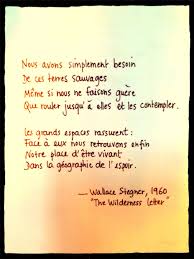 Nous avons simplement besoin
De ces terres sauvages
Même si nous ne faisons guère
Que rouler jusqu'à elles et les contempler.
Les grands espaces rassurent :
Face à eux nous retrouvons enfin
Notre place d'être vivant
Dans la géographie de l'espoir.
— Wallace Stegner, 1960
"The Wilderness Letter"